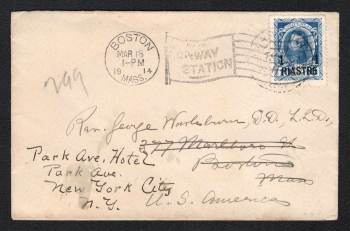 BOSTON
MAR 18
1-PM
1914
MASS.
STATION
1 1
PIASTRE
299
Rev. George Washburn, D.D. LL.D.,
377 Marlboro St
Boston
Mass
Park Ave. Hotel
Park Ave.
New York City
N.Y.
U.S. America